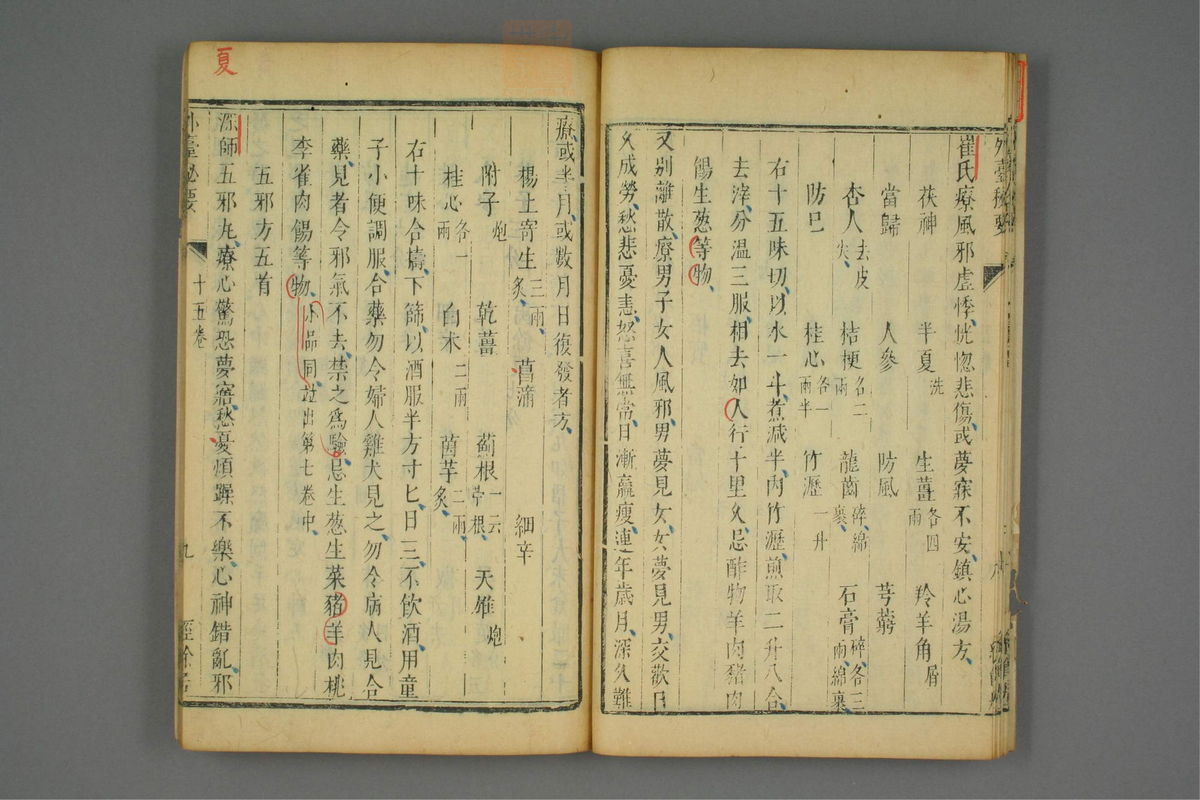 外臺秘要
崔氏療風邪虛悸恍惚悲傷或夢寐不安鎮心湯方
茯神 半夏洗 生薑各四兩 羚羊角屑
當歸 人參 防風 芎藭
杏人去皮尖 桔梗各二兩 龍齒碎綿裹 石膏碎各三兩綿裹
防巳 桂心各一兩半 竹瀝一升
右十五味切以水一斗煮減半内竹瀝煎取二升八合
去滓分溫三服相去如人行十里久忌酢物羊肉豬肉
餳生葱等物
又別離散療男子女人風邪男夢見女女夢見男交歡日
久成勞愁悲憂恚怒喜無常日漸羸瘦連年歲月深久難
療或半月或數月日復發者方
楊上寄生三兩炙 菖蒲 細辛
附子炮 乾薑 薊根一云芉根 天雄炮
桂心各一兩 白朮二兩 茵芋二兩炙
右十味合擣下篩以酒服半方寸匕日三不飲酒用童
子小便調服合藥勿令婦人雞犬見之勿令病人見合
藥見者令邪氣不去禁之爲驗忌生葱生菜豬羊肉桃
李雀肉餳等物小品同並出第七卷中
五邪方五首
深師五邪丸療心驚恐夢寤愁憂煩躁不樂心神錯亂邪
外臺秘要 十五卷 九 經餘居
夏